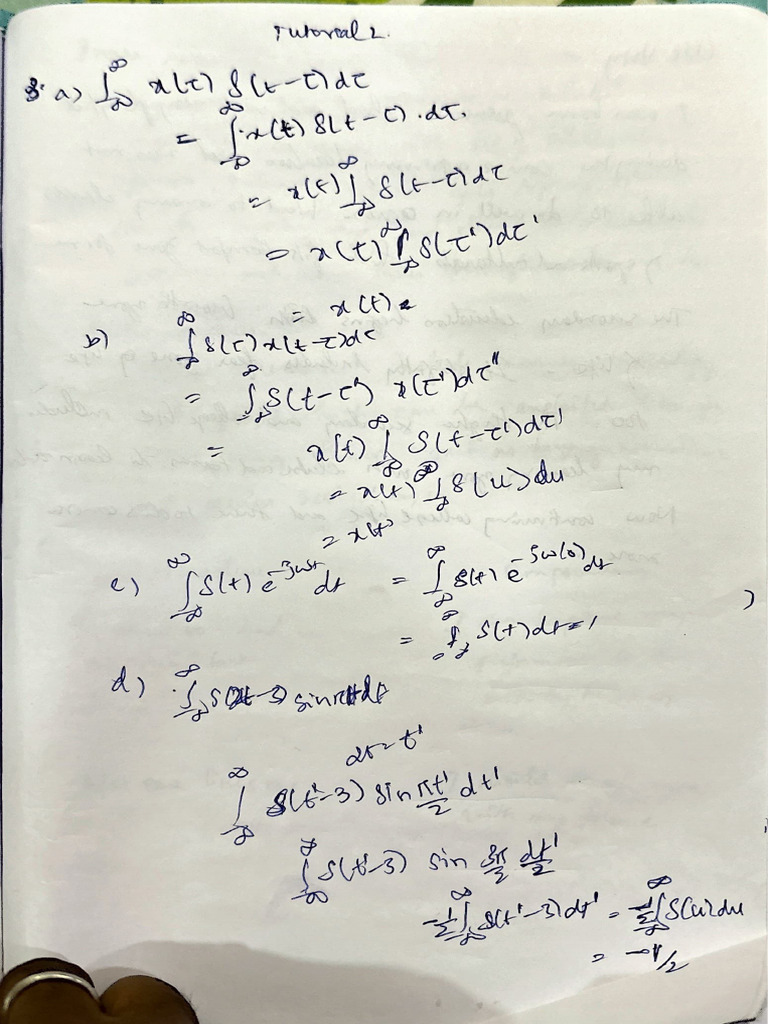 Tutorial 2.
3. a) ∫_{-∞}^{∞} x(τ) δ(t-τ) dτ
= ∫_{-∞}^{∞} x(t) δ(t-τ) . dτ.
= x(t) ∫_{-∞}^{∞} δ(t-τ) dτ
= x(t) ∫_{-∞}^{∞} δ(τ') dτ'
= x(t)
b) ∫_{-∞}^{∞} δ(τ) x(t-τ) dτ
= ∫_{-∞}^{∞} δ(t-τ') x(τ') dτ''
= x(t) ∫_{-∞}^{∞} δ(t-τ') dτ'
= x(t) ∫_{-∞}^{∞} δ(u) du
= x(t)
c) ∫_{-∞}^{∞} δ(t) e^{-jωt} dt = ∫_{-∞}^{∞} δ(t) e^{-jω(0)} dt
= ∫_{-∞}^{∞} δ(t) dt = 1
d) ∫_{-∞}^{∞} δ(2t-3) sin πt dt
2t = t'
∫_{-∞}^{∞} δ(t'-3) sin πt'/2 dt'
∫_{-∞}^{∞} δ(t'-3) sin 3π/2 dt'/2
-1/2 ∫_{-∞}^{∞} δ(t'-3) dt' = -1/2 ∫_{-∞}^{∞} δ(u) du
= -1/2